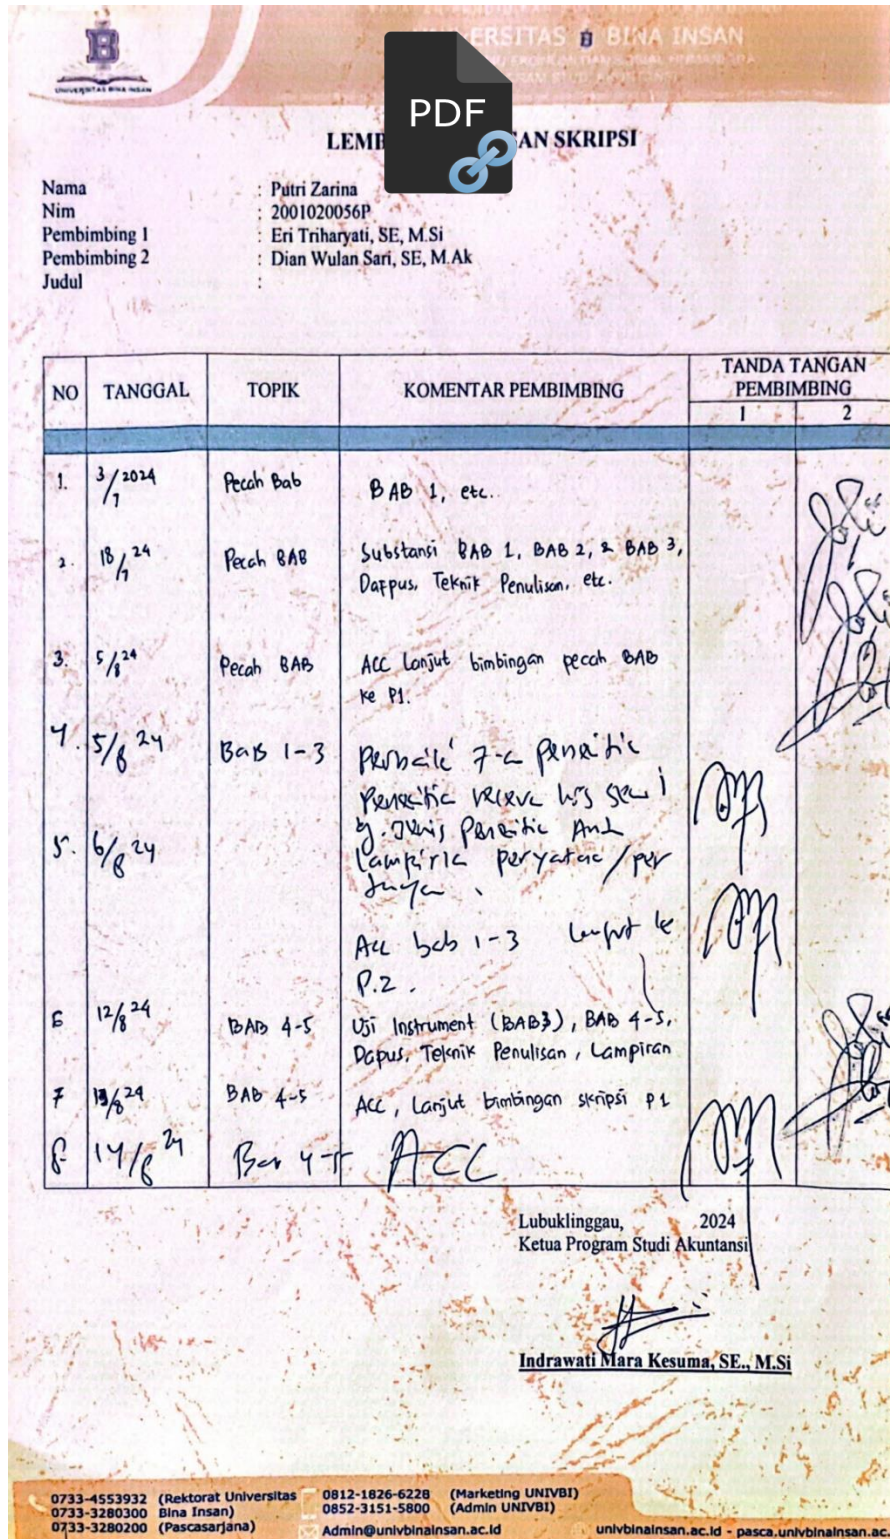 UNIVERSITAS BINA INSAN
ERSITAS BINA INSAN
PROGRAM STUDI AKUNTANSI
PDF
LEMB AN SKRIPSI
Nama : Putri Zarina
Nim : 2001020056P
Pembimbing 1 : Eri Triharyati, SE, M.Si
Pembimbing 2 : Dian Wulan Sari, SE, M.Ak
Judul :
NO TANGGAL TOPIK KOMENTAR PEMBIMBING TANDA TANGAN PEMBIMBING
1 2
1. 3/7 2024 Pecah Bab BAB 1, etc.
2. 18/7 24 Pecah BAB Substansi BAB 1, BAB 2, & BAB 3,
Dafpus, Teknik Penulisan, etc.
3. 5/8 24 Pecah BAB ACC Lanjut bimbingan pecah BAB
ke P1.
4. 5/8 24 Bab 1-3
5. 6/8 24
Acc bab 1-3 ke
P.2.
6 12/8 24 BAB 4-5 Uji Instrument (BAB3), BAB 4-5,
Dapus, Teknik Penulisan, Lampiran
7 13/8 24 BAB 4-5 ACC, Lanjut bimbingan skripsi P1
8 14/8 24 Bab 4-5 ACC
Lubuklinggau, 2024
Ketua Program Studi Akuntansi
Indrawati Mara Kesuma, SE., M.Si
0733-4553932 (Rektorat Universitas
0733-3280300 Bina Insan)
0733-3280200 (Pascasarjana)
0812-1826-6228 (Marketing UNIVBI)
0852-3151-5800 (Admin UNIVBI)
Admin@univbinainsan.ac.id
univbinainsan.ac.id - pasca.univbinainsan.ac